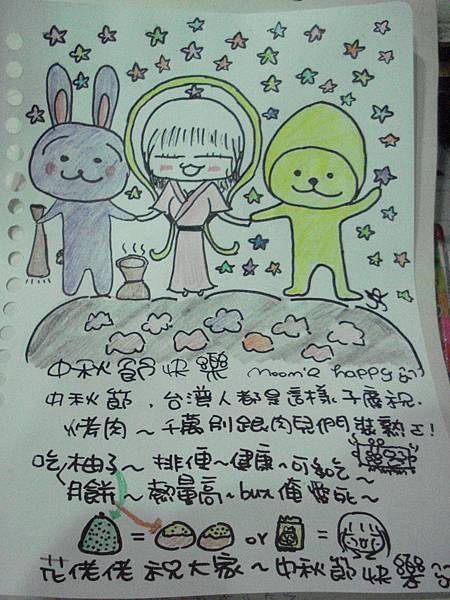 中秋節快樂 moom's happy
中秋節，台灣人都是這樣子慶祝.
烤肉～千萬別跟肉兒們裝熟!
吃柚子～排便～健康～可多吃～
月餅～熱量高～but俺愛死～
= or =
花佬佬祝大家～中秋節快樂